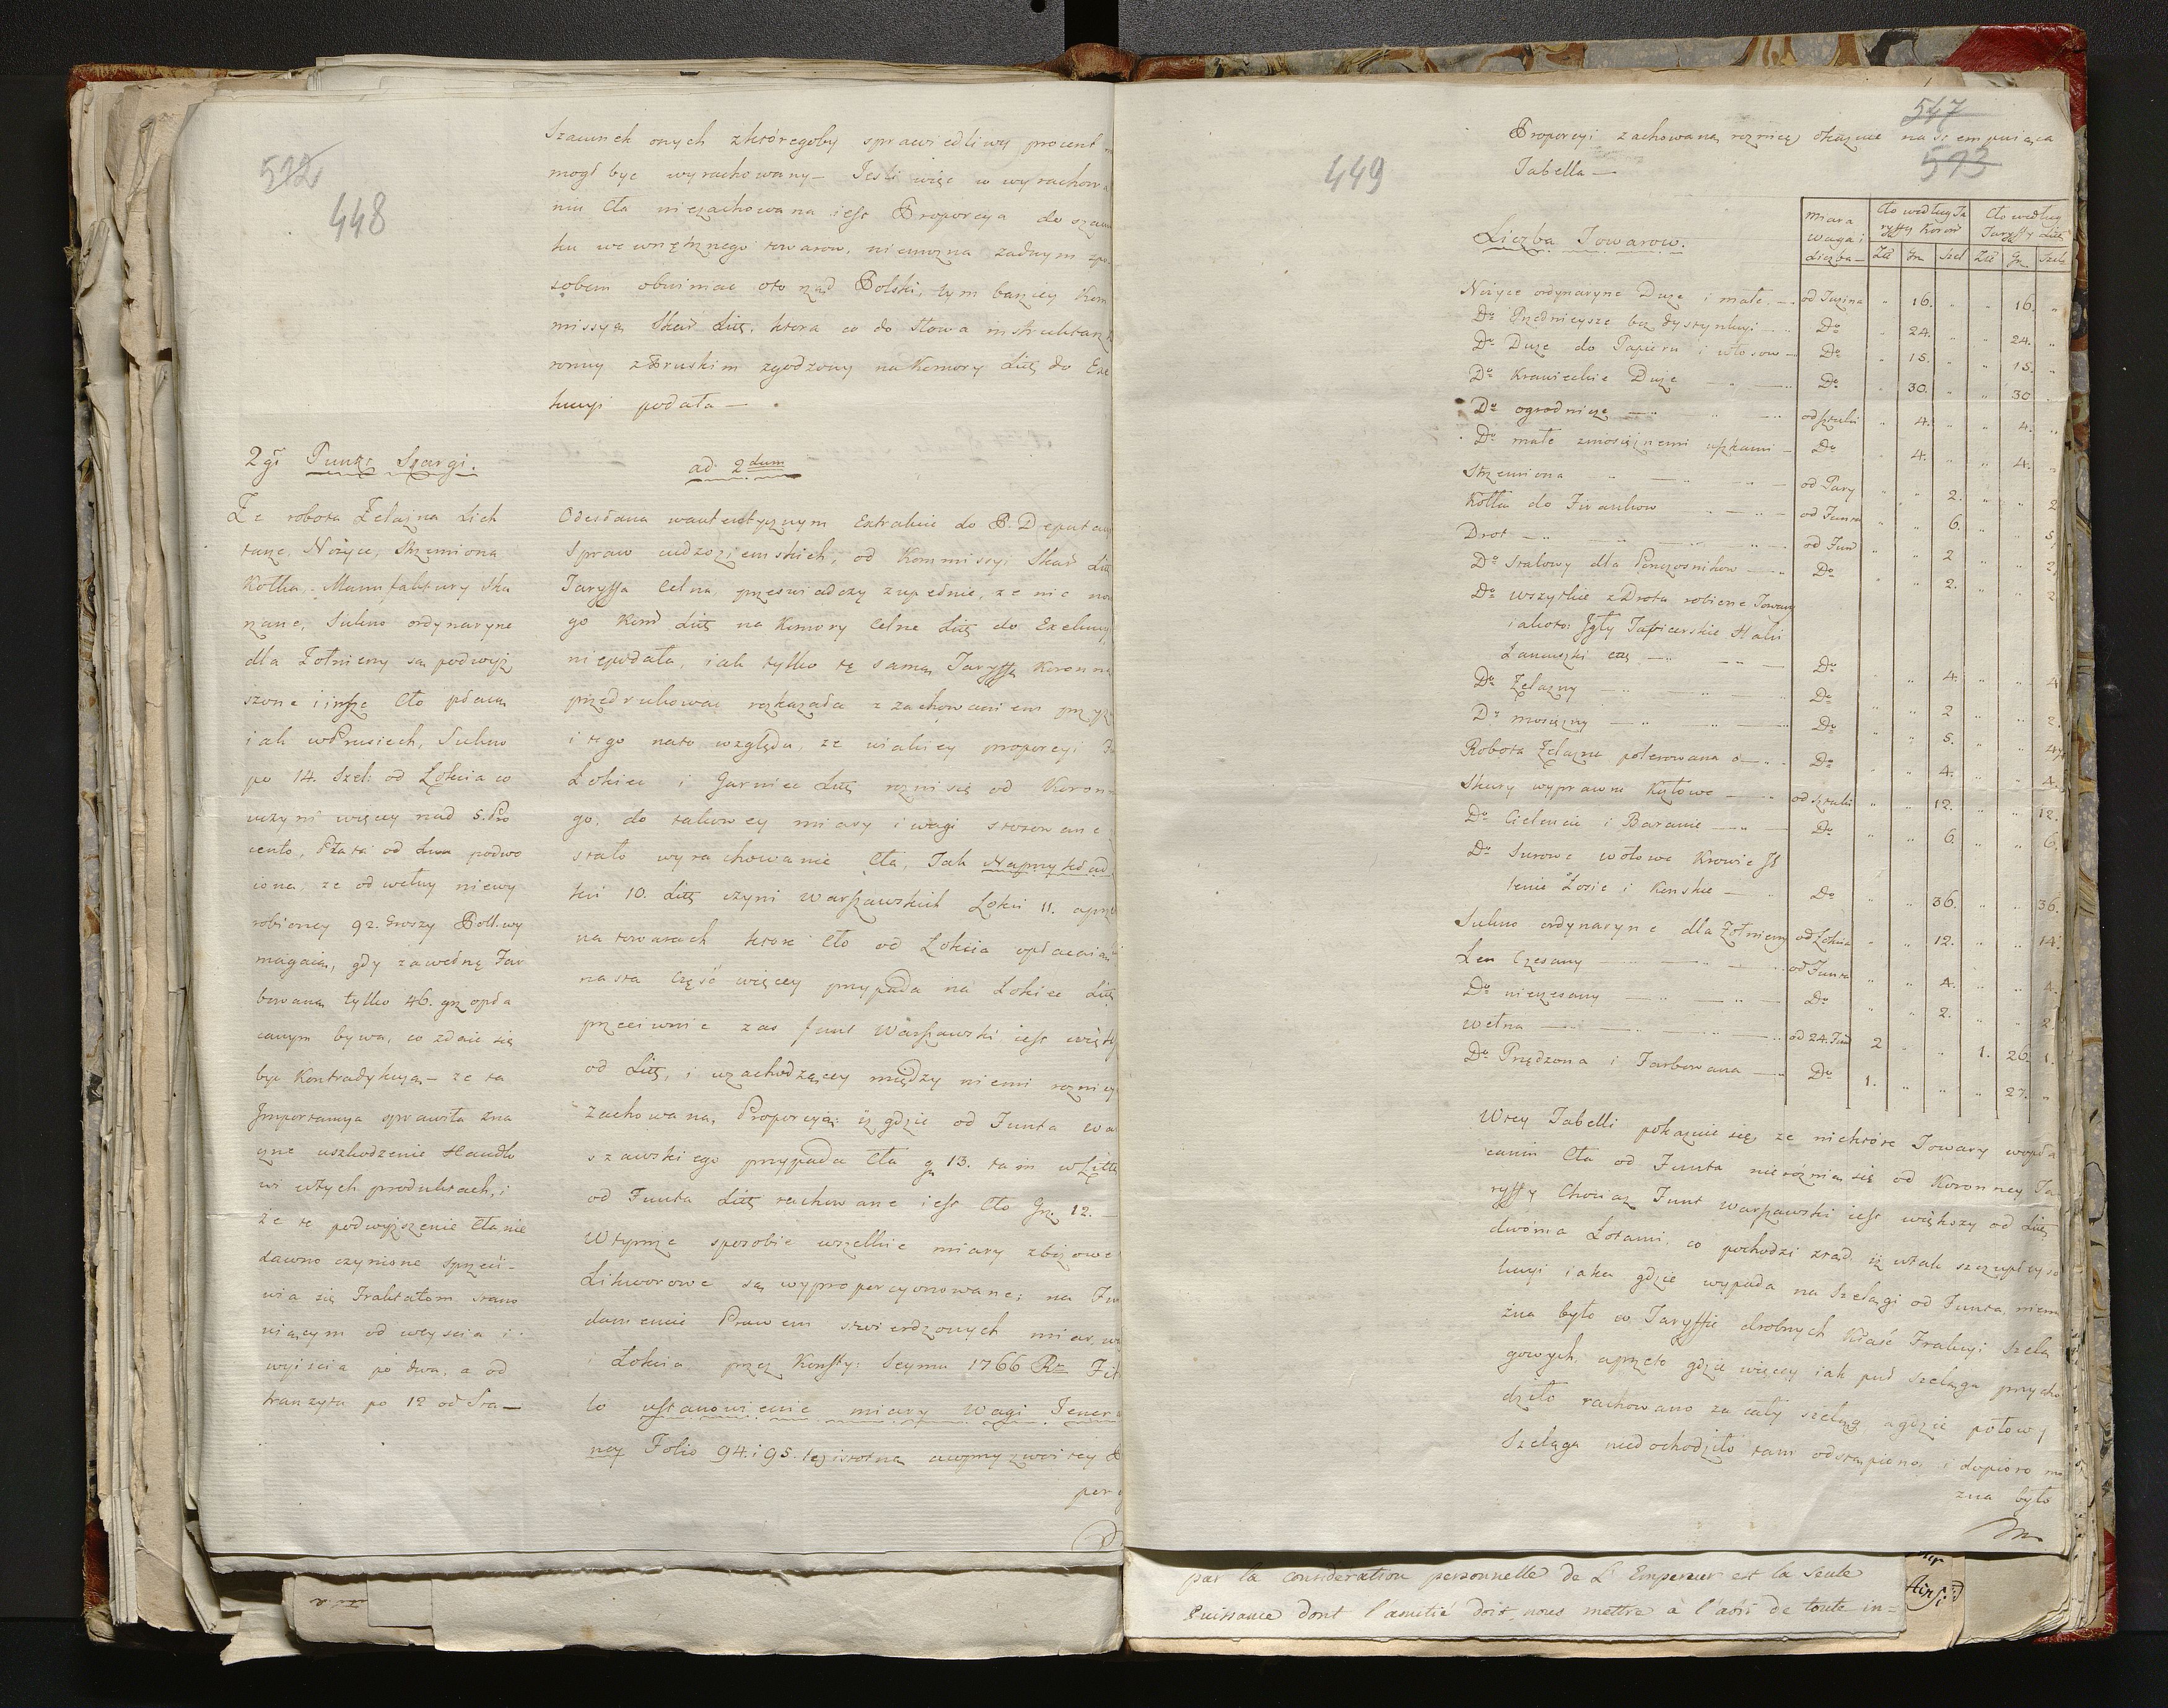 572
448
Szacunek onych z któregoby sprawiedliwy procent
mogł bydź wyrachowany — Jesli więc w wyrachowa
niu Cła niezachowana iest Proporcya do szacun
ku wewnętrznego towarow, niemożna żadnym spo
sobem obwiniać oto rząd Polski, tym barziey Kom
missyą Skar: Litt: ktora co do słowa instruktarz
ronny z Pruskim zgodzony na Komory Litt: do Exe
kucyi podała —
2gi Punkt Skargi.
Ze robota Żelazna Lich
tarze, Nożyce, Strzemiona
Kołka, Manufaktury Sku
rzane, Sukno ordynaryne
dla Żołnierzy są podwyż
szone i insze Cło płacą
iak w Prusiech, Sukno
po 14. Szel: od Łokcia co
uczyni więcey nad 5. Pro
cento, Płata od Lnu podwo
iona, ze od wełny niewy
robioney 92. Groszy Poll: wy
magaią, gdy za wełnę Far
bowaną tylko 46. gr opła
canym bywa, co zdaie się
byc Kontradykcyą — ze ta
Importancya sprawiła zna
czne uszkodzenie Handlo
wi w tych produktach, i
że te podwyższenie Cła nie
dawno czynione sprzeci-
wia się Traktatom stano
wiącym od weyscia i
wyiścia po dwa, a od
tranzyta po 12 od Sta —
ad 2dum
Odesłana w autentycznym Extrakcie do P. Deputacyi
Spraw cudzoziemskich, od Kommissyi Skar: Litt
Taryffa Celna, przeswiadczy zupełnie, ze nic now
go Kom: Litt: na Komory Celne Litt: do Exekucyi
niepodała, iak tylko tę samą Taryffę Koronną
przedrukować rozkazała z zachowaniem przyz
i tego nato względu, ze wiakiey proporcyi Fu
Łokiec i Garniec Litt: rożni się od Koronn
go, do takowey miary i wagi stosowane
stało wyrachowanie Cła, Jak Naprzykład
kci 10. Litt: czyni Warszawskich Łokci 11. aprzeto
na towarach ktore Cło od Łokcia opłacaią
nasta Część więcey przypada na Łokiec Litt
przeciwnie zas funt Warszawski iest większy
od Litt:, i w zachodzącey między niemi rożnicy
zachowana Proporcya: iz gdzie od Funta War
szawskiego przypada Cła gr 13. tam w Litt:
od Funta Litt: rachowane iest Cło Gr. 12. —
W tymże sposobie wszelkie miary zbożowe
Likworowe są wyproporcyonowane; na Fun
damencie Prawem stwierdzonych miar, wa
i Łokcia przez Konsty: Seymu 1766 Ru Titu
lo ustanowienie miary Wagi Jener
ney Folio 94. i 95. tey istotną
449
547
573
Proporcyi zachowaną roznicę okazuie nastempuiąca
Tabella —
Liczba Towarow.
Miara Waga i Liczba —
Cło według Taryffy Koron
Cło według Taryffy Litt
Złł Gr Szel Złł Gr Szel
Nożyce ordynaryne Duże i małe — od Tuzina " 16. " " 16. "
Do Przednieysze bez dystynkcyi — Do " 24. " " 24. "
Do Duże do Papieru i włosow — Do " 15. " " 15. "
Do Krawieckie Duże — Do " 30. " " 30 "
Do ogrodnicze — od sztuki " 4. " " 4. "
Do małe z mosiężnemi uszkami — Do " 4. " " 4. "
Strzemiona — od Pary " " 2. " " 2
Kołka do Firankow — od Funta " " 6. " " 5.
Drot — od Fun " " 2 " " 2.
Do Stalowy dla Ponczosnikow — Do " " 2. " " 2
Do wszytkie z Drota robione Towary
iakoto: Igły Tapicerskie Haki
Łancuszki etc — Do " " 4. " " 4
Do Żelazny — Do " " 2 " " 2.
Do mosiężny — Do " " 5. " " 4½
Robota Żelazna polerowana — Do " " 4. " " 4.
Skury wyprawne Kozłowe — od sztuki " " 12. " " 12.
Do Cielencie i Baranie — Do " " 6. " " 6.
Do Surowe wołowe Krowie Je
lenie Łosie i Konskie — Do " " 36. " " 36.
Sukno ordynaryne dla Żołnierzy od Łokcia " " 12. " " 14.
Len Czesany — od Funta " " 4. " " 4.
Do nieczesany — Do " " 2. " " 2.
Wełna — od 24. Fun 2 " " 1. 26. 1.
Do Przędzona i Farbowana — Do 1. " " " 27. "
W tey Tabelli pokazuie się, ze niektóre Towary w opła
caniu Cła od Funta nierożnią się od Koronney Ta
ryffy Chociaz Funt warszawski iest większy od Litt
dwóma Łotami, co pochodzi ztąd iz w tak szczupłey
kucyi iaka gdzie wypada na Szelągi od Funta, niemo
żna było w Taryffie drobnych Kłaść Frakcyi Szelą
gowych, aprzeto gdzie więcey iak puł Szeląga przycho
dziło rachowano za cały szeląg agdzie połowy
Szeląga niedochodziło tam odstąpiono, i dopiero mo
żna było
par la considération personnelle de L'Empereur est la seule
Puissance dont l'amitié doit nous mettre à l'abri de toute in=